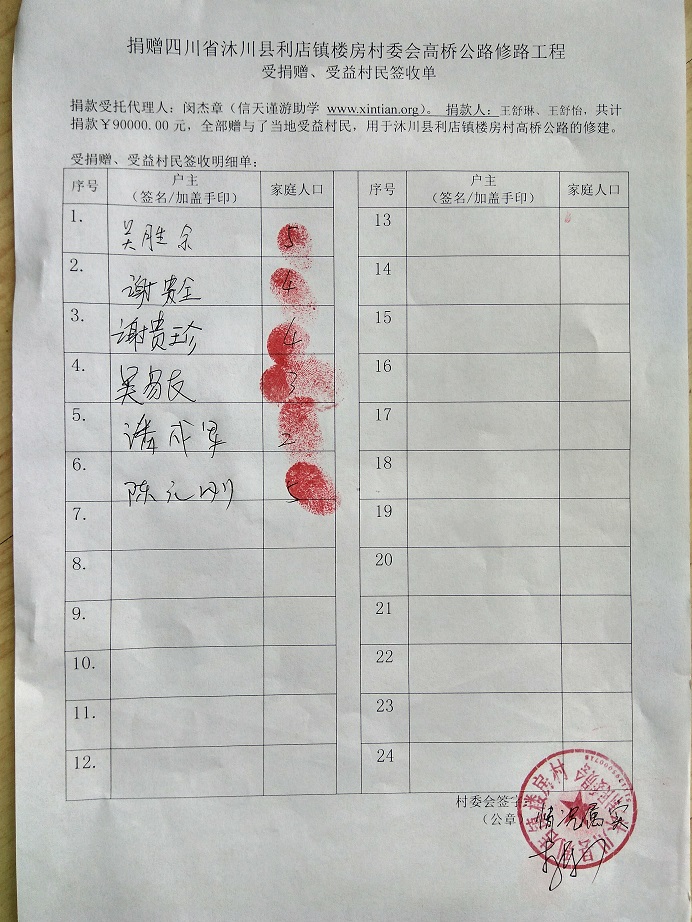 捐赠四川省沐川县利店镇楼房村委会高桥公路修路工程
受捐赠、受益村民签收单
捐款受托代理人：闵杰章（信天谨游助学 www.xintian.org）。 捐款人：王舒琳、王舒怡，共计
捐款￥90000.00 元，全部赠与了当地受益村民，用于沐川县利店镇楼房村高桥公路的修建。
受捐赠、受益村民签收明细单：
序号 户主 （签名/加盖手印） 家庭人口 序号 户主 （签名/加盖手印） 家庭人口
1. 吴胜余 5 13
2. 谢贵全 4 14
3. 谢贵珍 4 15
4. 吴易友 3 16
5. 潘成军 2 17
6. 陈元刚 5 18
7. 19
8. 20
9. 21
10. 22
11. 23
12. 24
村委会签字
（公章）
情况属实